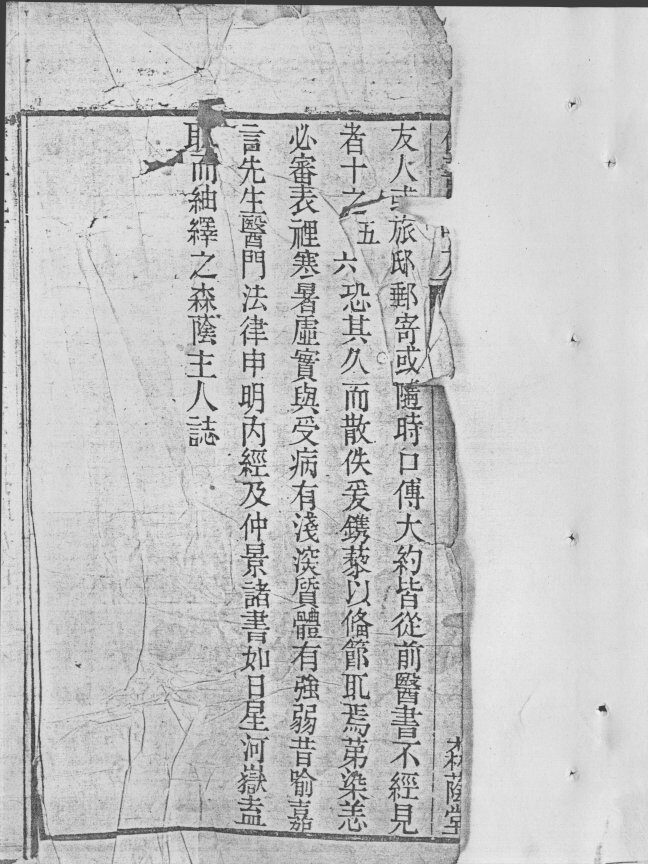 友人或旅邸郵寄或隨時口傳大約皆從前醫書不經見
者十之五六恐其久而散佚爰鐫藜以俻節取焉苐染恙
必審表裡寒暑虛實與受病有淺深質體有強弱昔喻嘉
言先生醫門法律申明內經及仲景諸書如日星河嶽盍
取而紬繹之森蔭主人誌
森蔭堂